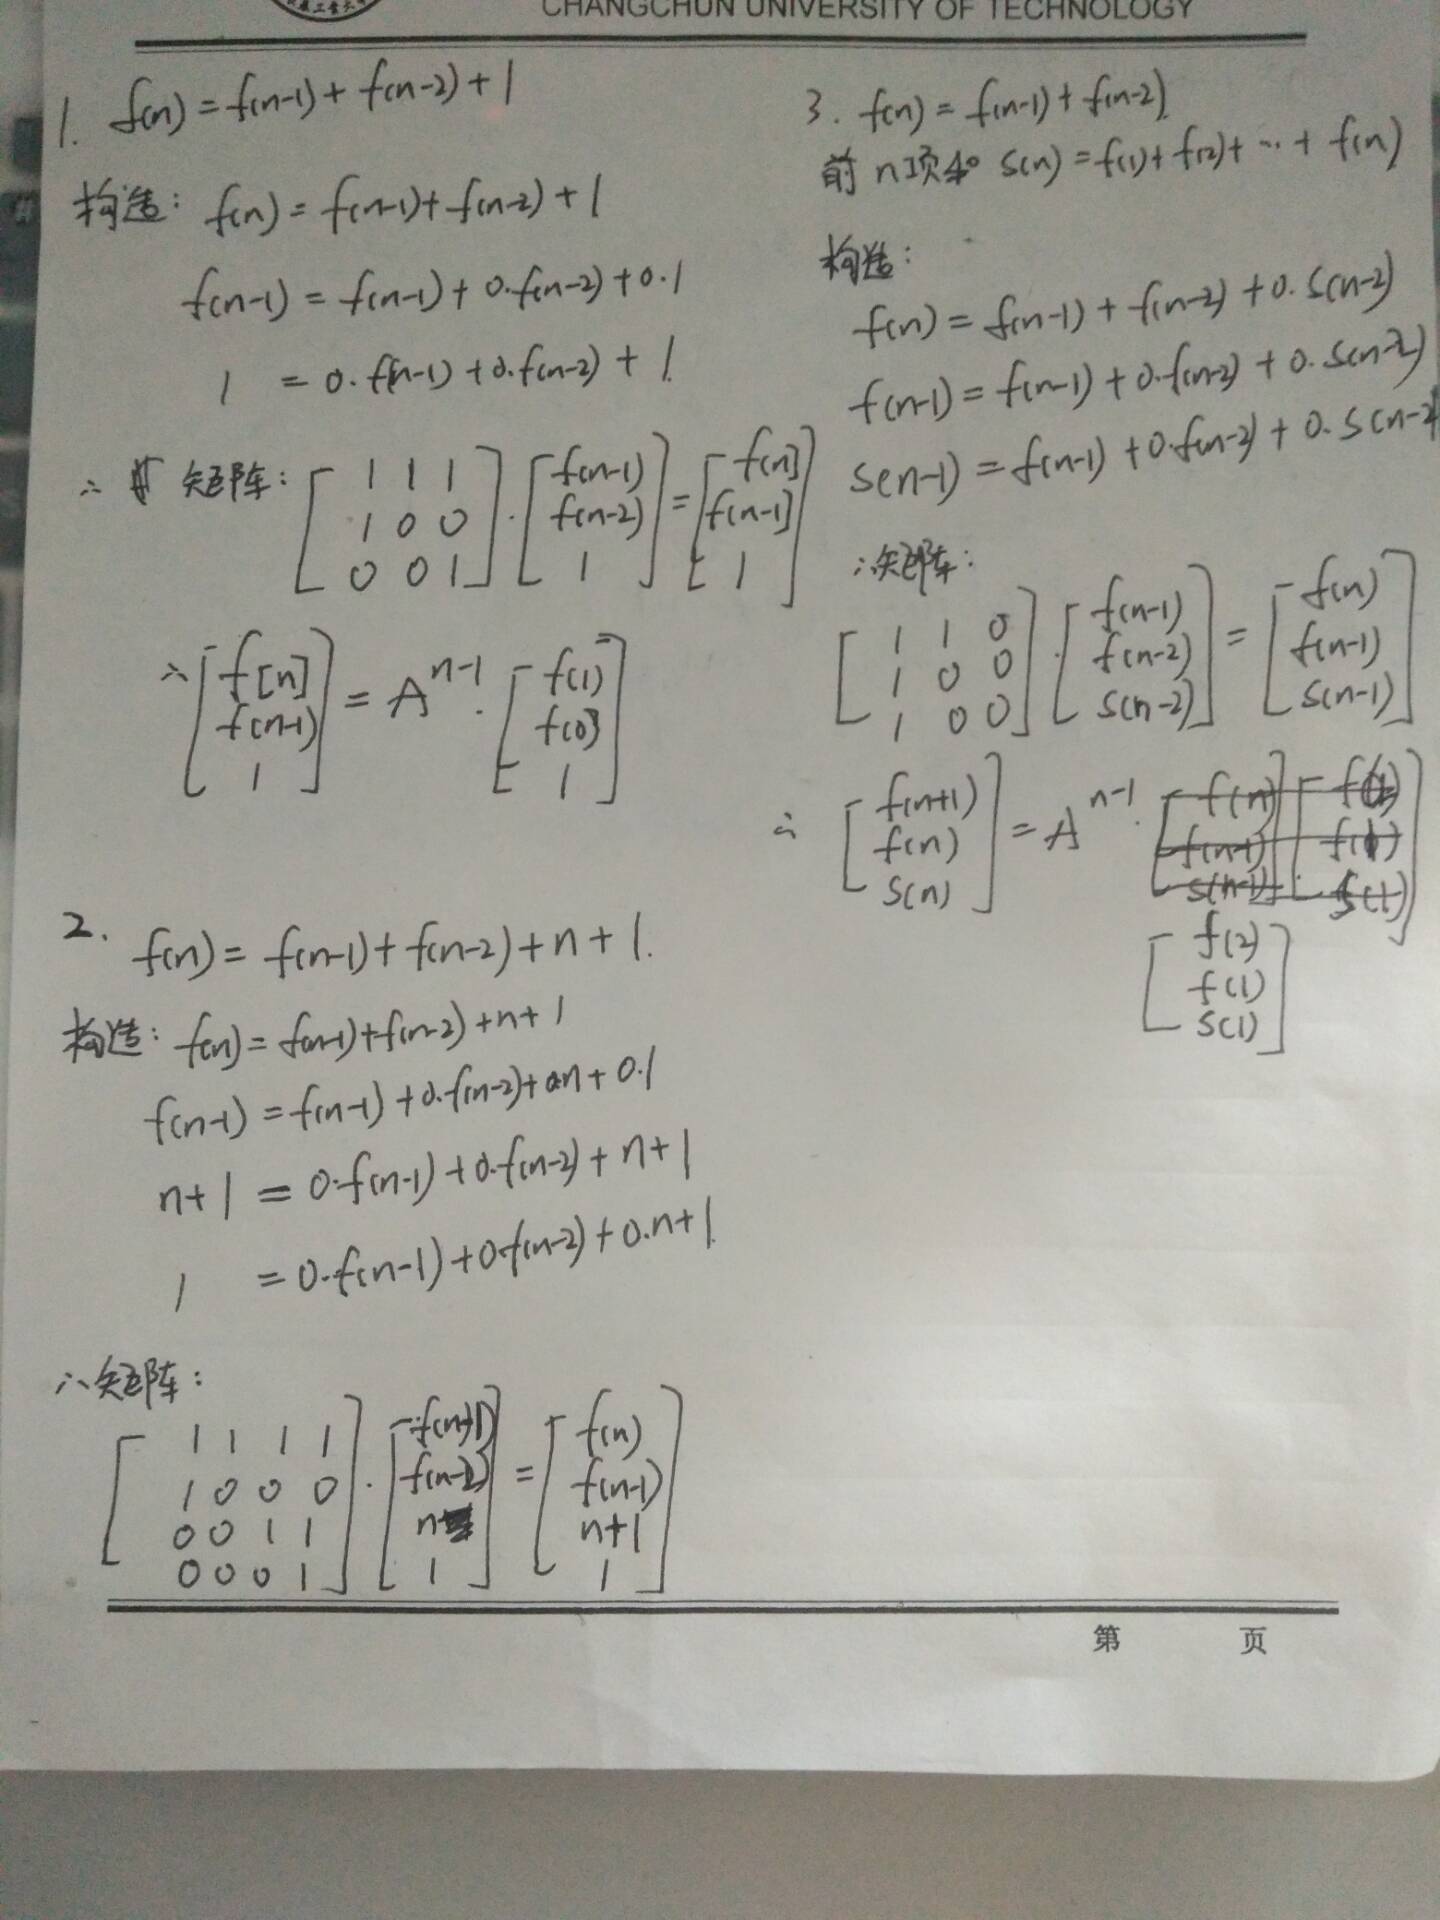 CHANGCHUN UNIVERSITY OF TECHNOLOGY
1. f(n) = f(n-1) + f(n-2) + 1
构造: f(n) = f(n-1) + f(n-2) + 1
f(n-1) = f(n-1) + 0·f(n-2) + 0·1
1 = 0·f(n-1) + 0·f(n-2) + 1
∴ 矩阵: [1 1 1; 1 0 0; 0 0 1] · [f(n-1); f(n-2); 1] = [f[n]; f[n-1]; 1]
∴ [f[n]; f(n-1); 1] = A^{n-1} · [f(1); f(0); 1]
2. f(n) = f(n-1) + f(n-2) + n + 1.
构造: f(n) = f(n-1) + f(n-2) + n + 1
f(n-1) = f(n-1) + 0·f(n-2) + 0·n + 0·1
n+1 = 0·f(n-1) + 0·f(n-2) + n + 1
1 = 0·f(n-1) + 0·f(n-2) + 0·n + 1
∴ 矩阵:
[1 1 1 1; 1 0 0 0; 0 0 1 1; 0 0 0 1] · [f(n-1); f(n-2); n; 1] = [f(n); f(n-1); n+1; 1]
3. f(n) = f(n-1) + f(n-2)
前n项和 S(n) = f(1) + f(2) + ··· + f(n)
构造:
f(n) = f(n-1) + f(n-2) + 0·S(n-2)
f(n-1) = f(n-1) + 0·f(n-2) + 0·S(n-2)
S(n-1) = f(n-1) + 0·f(n-2) + 0·S(n-2
∴矩阵:
[1 1 0; 1 0 0; 1 0 0] · [f(n-1); f(n-2); S(n-2)] = [f(n); f(n-1); S(n-1)]
∴ [f(n+1); f(n); S(n)] = A^{n-1} · [f(2); f(1); S(1)]
第 页